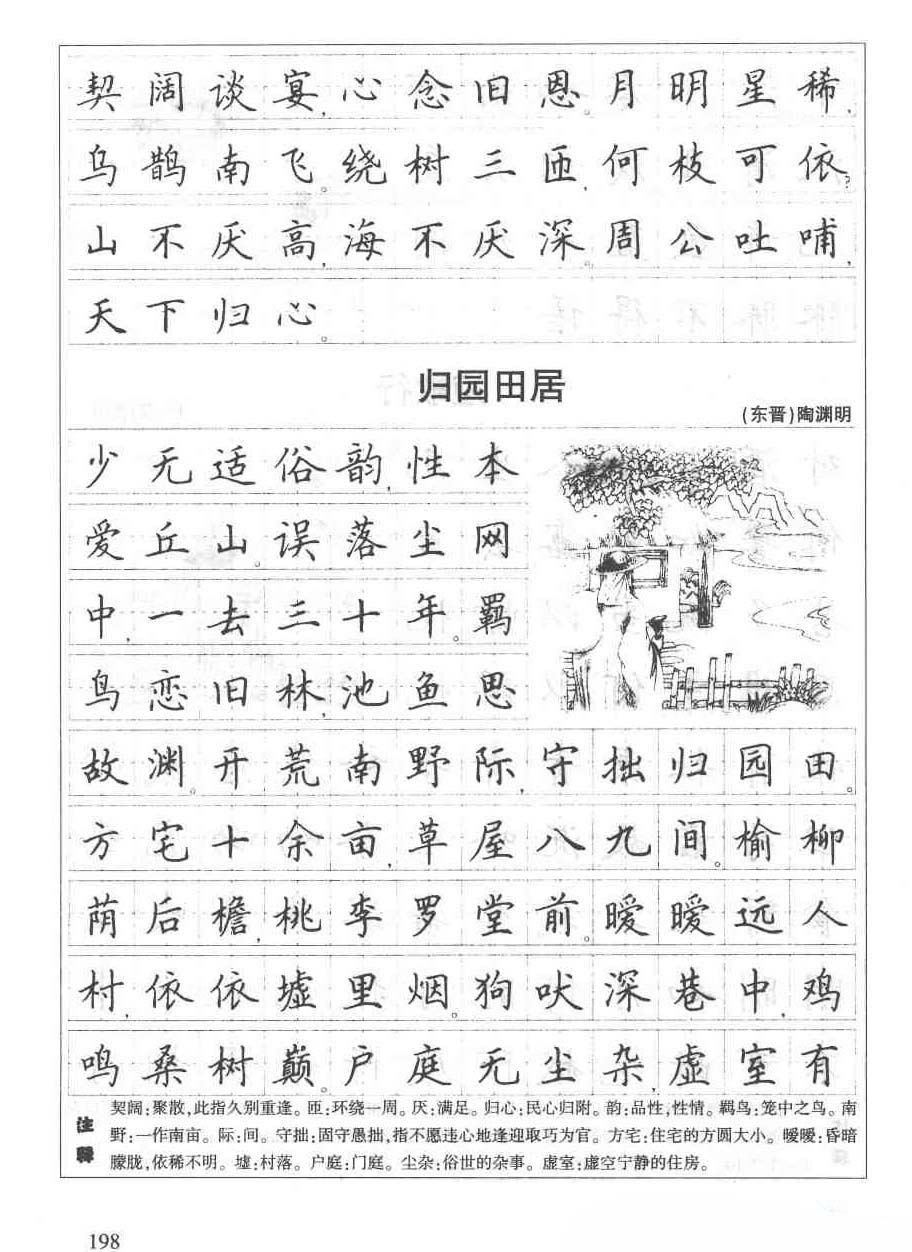 契阔谈宴,心念旧恩。月明星稀,
乌鹊南飞。绕树三匝,何枝可依?
山不厌高,海不厌深。周公吐哺,
天下归心。
归园田居
(东晋)陶渊明
少无适俗韵,性本
爱丘山。误落尘网
中,一去三十年。羁
鸟恋旧林,池鱼思
故渊。开荒南野际,守拙归园田。
方宅十余亩,草屋八九间。榆柳
荫后檐,桃李罗堂前。暧暧远人
村,依依墟里烟。狗吠深巷中,鸡
鸣桑树巅。户庭无尘杂,虚室有
注释
契阔:聚散,此指久别重逢。匝:环绕一周。厌:满足。归心:民心归附。韵:品性,性情。羁鸟:笼中之鸟。南
野:一作南亩。际:间。守拙:固守愚拙,指不愿违心地逢迎取巧为官。方宅:住宅的方圆大小。暧暧:昏暗
朦胧,依稀不明。墟:村落。户庭:门庭。尘杂:俗世的杂事。虚室:虚空宁静的住房。
198